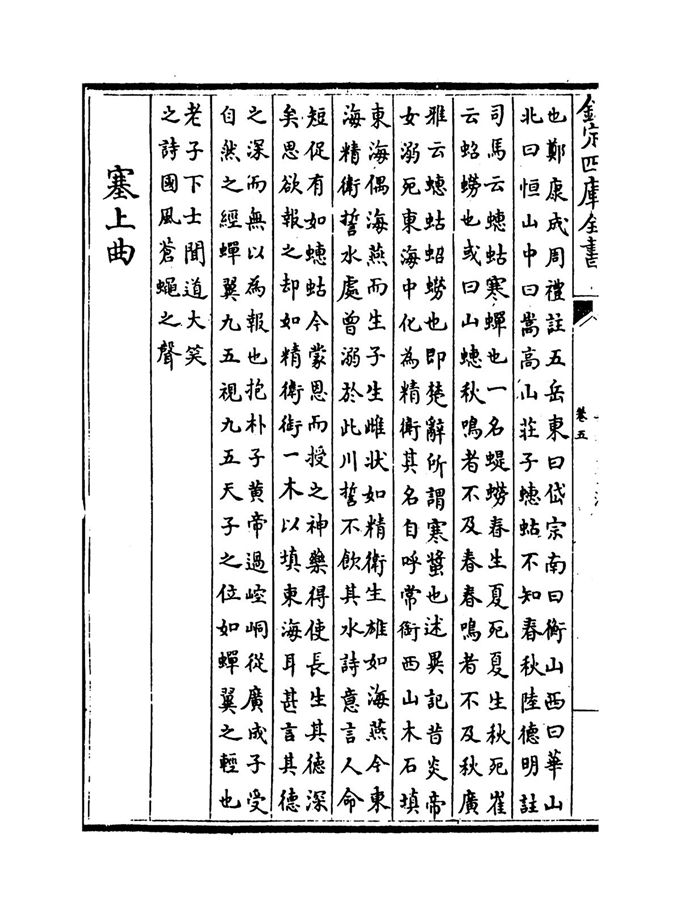 欽定四庫全書
卷五
也鄭康成周禮註五岳東曰岱宗南曰衡山西曰華山
北曰恒山中曰嵩高山莊子蟪蛄不知春秋陸德明註
司馬云蟪蛄寒蟬也一名蝭蟧春生夏死夏生秋死崔
云蛁蟧也或曰山蟪秋鳴者不及春春鳴者不及秋廣
雅云蟪蛄蛁蟧也即楚辭所謂寒螿也述異記昔炎帝
女溺死東海中化為精衛其名自呼常銜西山木石填
東海偶海燕而生子生雌狀如精衛生雄如海燕今東
海精衛誓水處曾溺於此川誓不飲其水詩意言人命
短促有如蟪蛄今蒙恩而授之神藥得使長生其德深
矣思欲報之却如精衛銜一木以填東海耳甚言其德
之深而無以為報也抱朴子黄帝過崆峒從廣成子受
自然之經蟬翼九五視九五天子之位如蟬翼之輕也
老子下士聞道大笑
之詩國風蒼蠅之聲
塞上曲